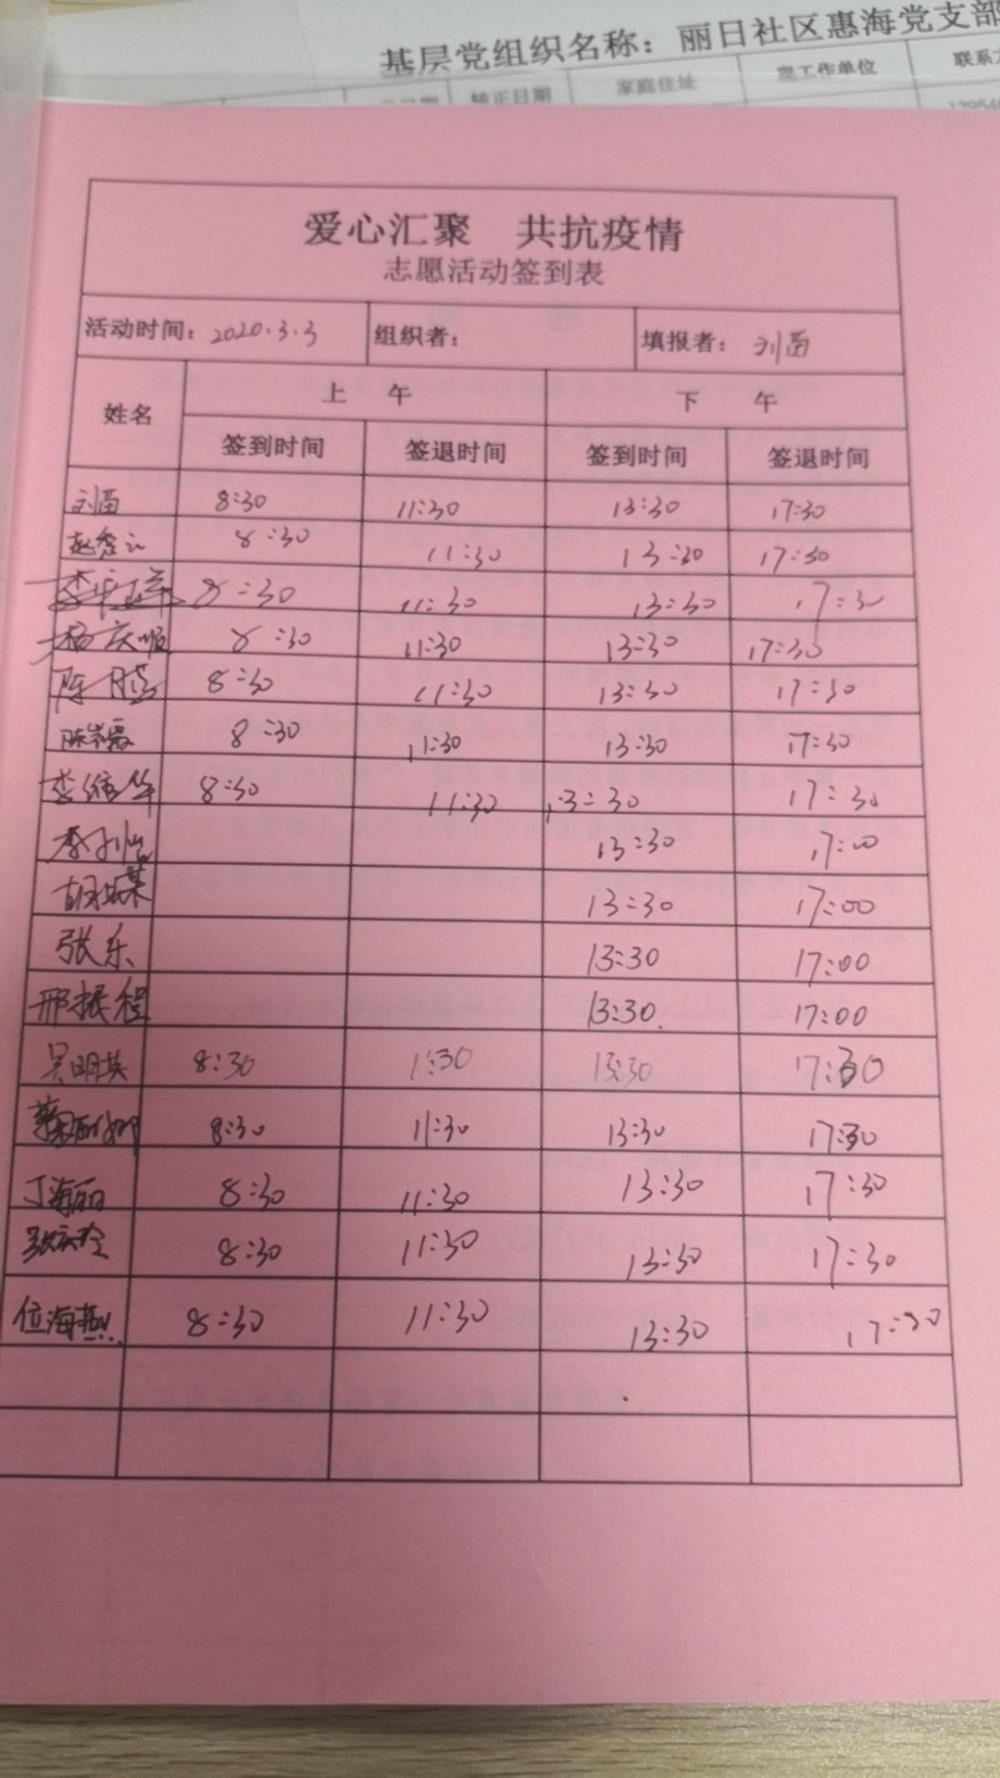 基层党组织名称：丽日社区惠海党支部
转正日期 家庭住址 现工作单位 联系方
爱心汇聚 共抗疫情
志愿活动签到表
活动时间：2020.3.3 组织者： 填报者：刘茵
姓名 上 午 下 午
签到时间 签退时间 签到时间 签退时间
刘茵 8:30 11:30 13:30 17:30
赵秀云 8:30 11:30 13:30 17:30
8:30 11:30 13:30 17:30
杨庆顺 8:30 11:30 13:30 17:30
陈 8:30 11:30 13:30 17:30
陈 8:30 11:30 13:30 17:30
李维华 8:30 11:30 13:30 17:30
李 13:30 17:00
胡 13:30 17:00
张东 13:30 17:00
邢振程 13:30 17:00
吴明英 8:30 11:30 13:30 17:30
8:30 11:30 13:30 17:30
丁海丽 8:30 11:30 13:30 17:30
张庆玲 8:30 11:30 13:30 17:30
位海燕 8:30 11:30 13:30 17:30